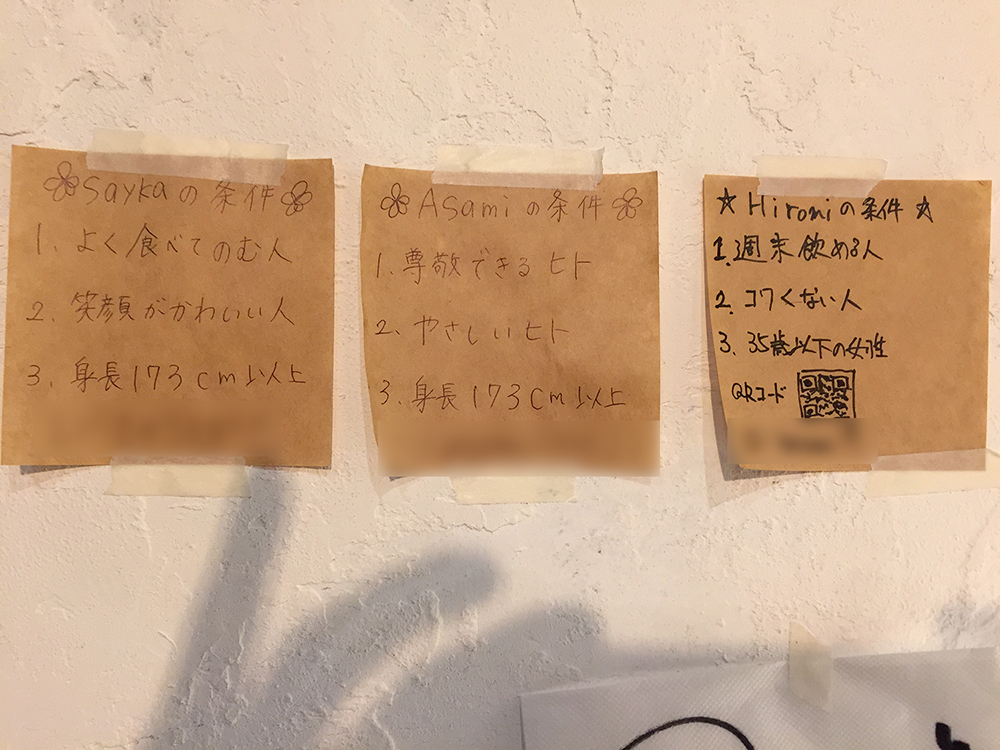 Saykaの条件
1. よく食べてのむ人
2. 笑顔がかわいい人
3. 身長173cm以上
Asamiの条件
1. 尊敬できるヒト
2. やさしいヒト
3. 身長173cm以上
☆Hiromiの条件☆
1. 週末飲める人
2. コワくない人
3. 35歳以下の女性
QRコード